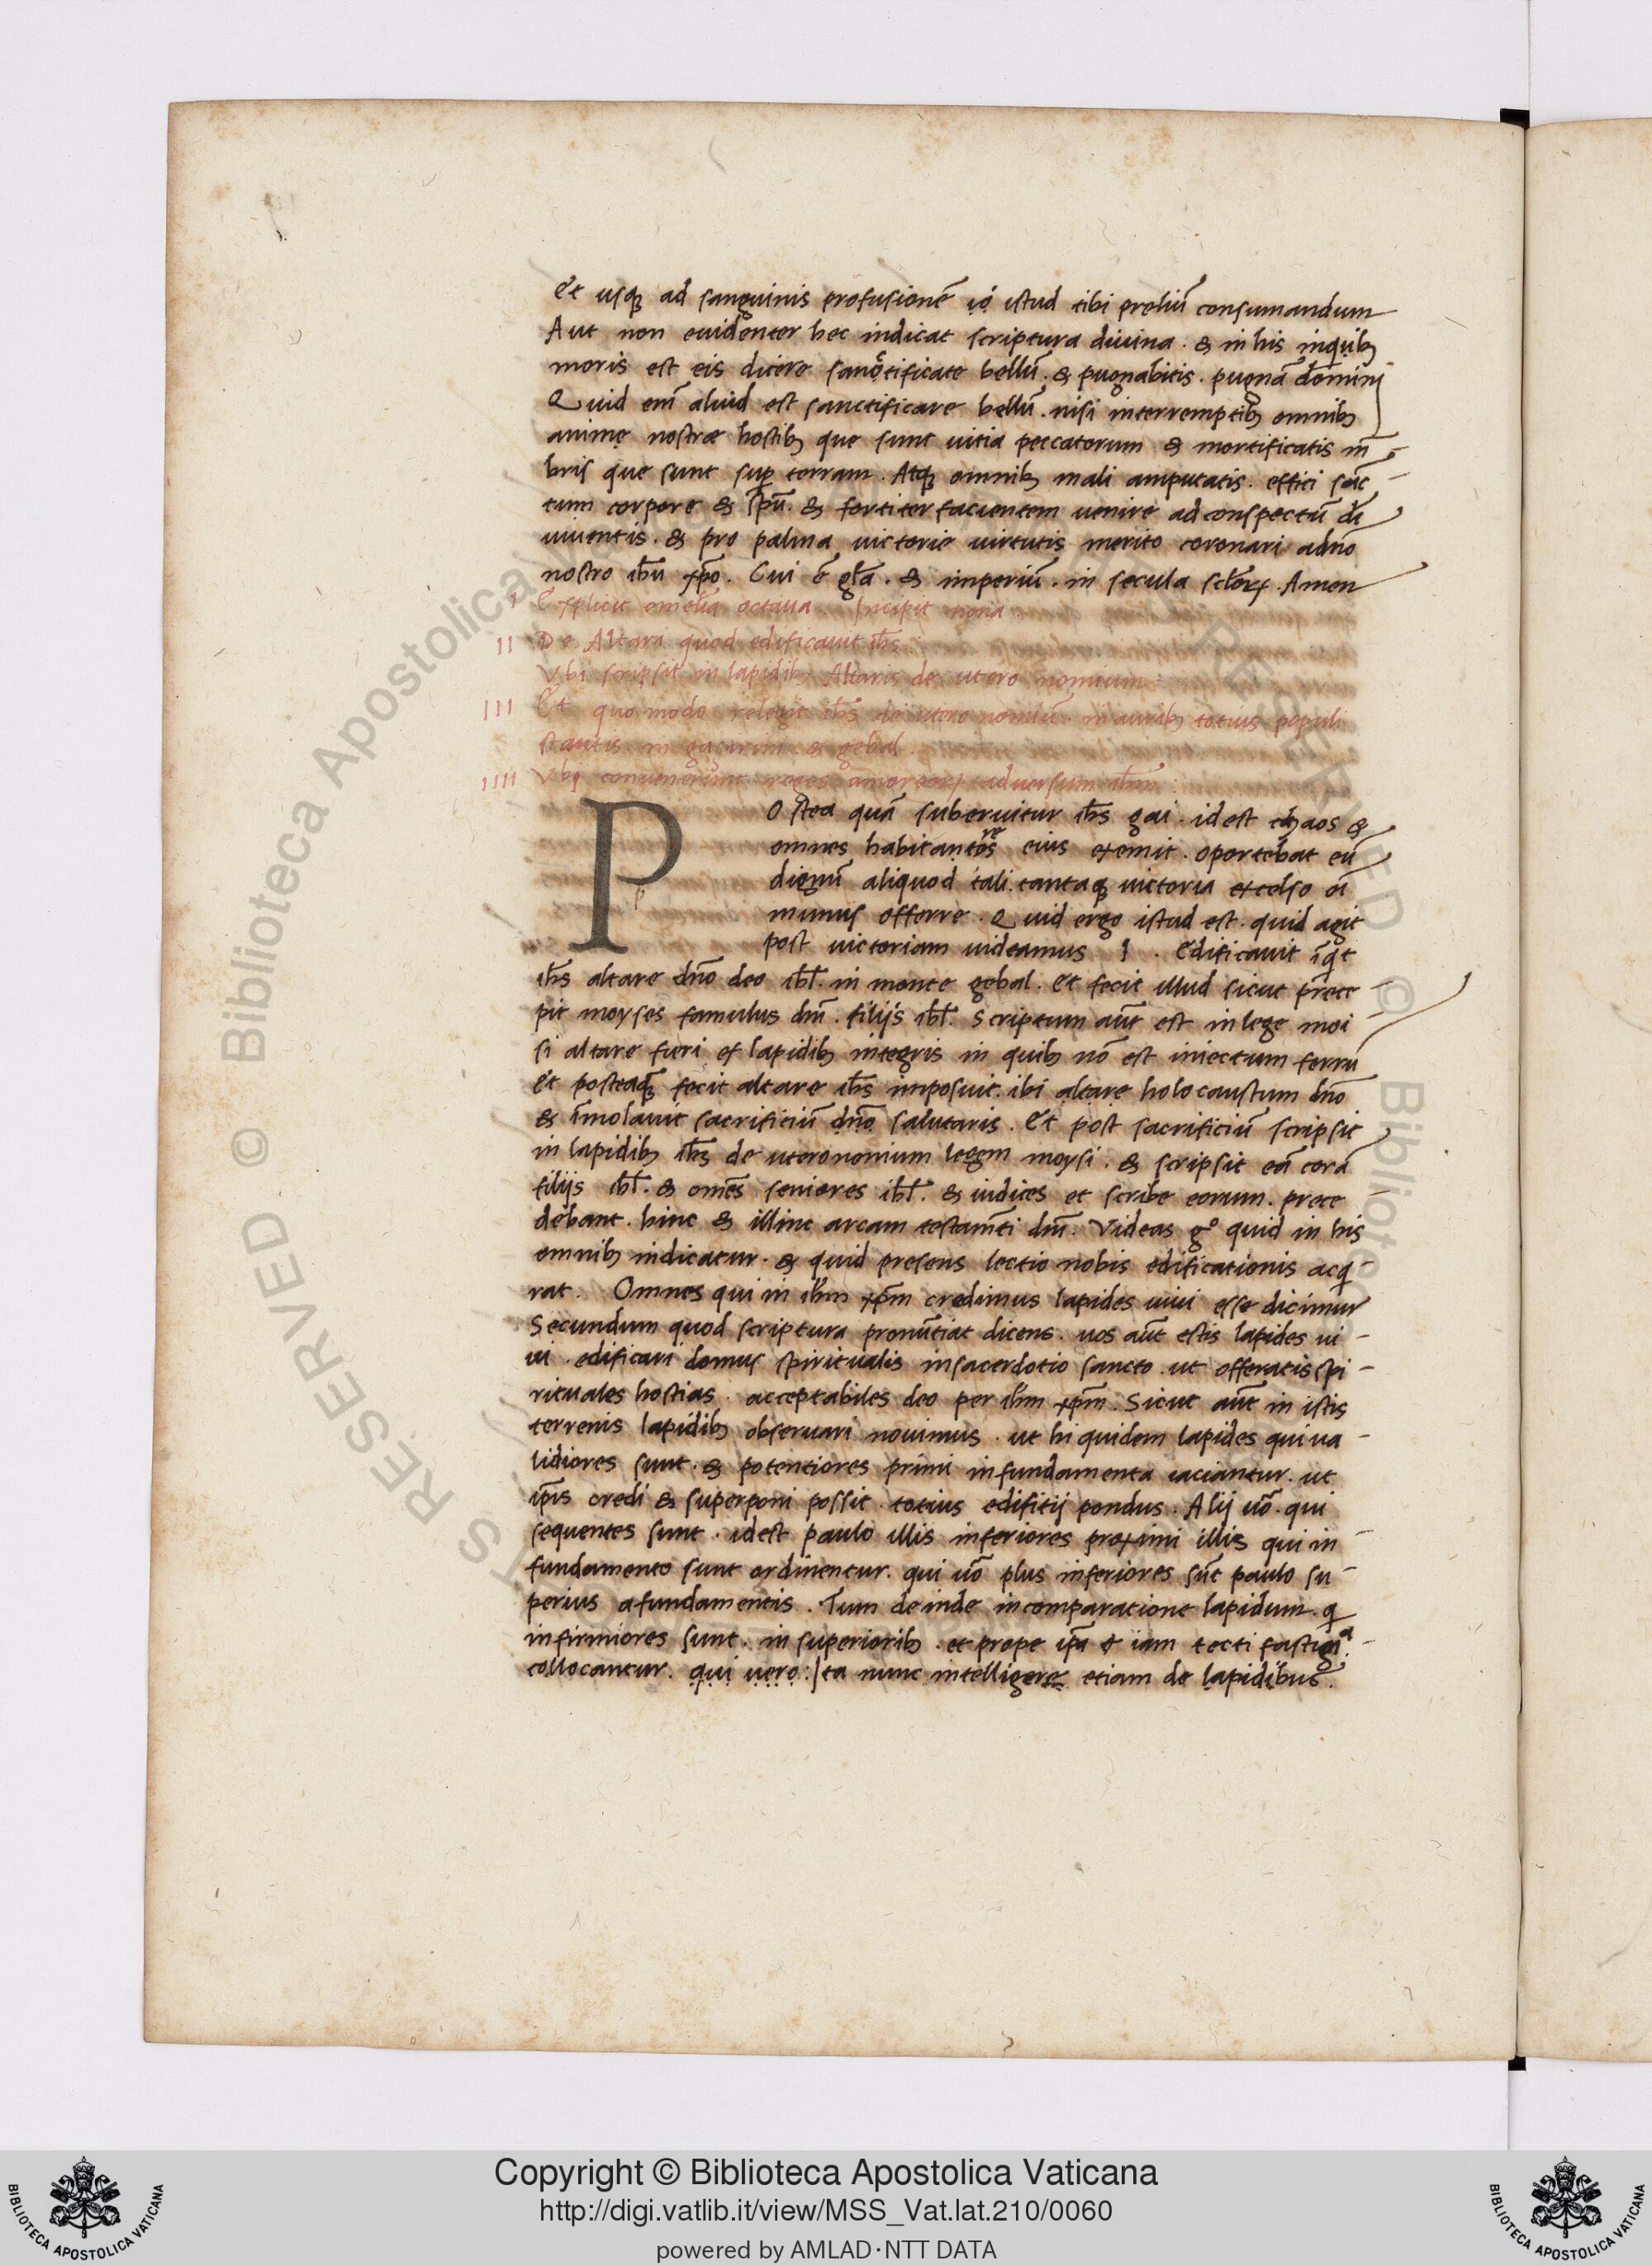 Et usq; ad sanguinis profusionē iō istud tibi preliū consumandum
Aut non euidenter hec indicat scriptura diuina . & in his inquib;
moris est eis dicere sanctificate bellū . & pugnabitis . pugnā domini
Quid enī aliud est sanctificare bellū . nisi interremptib; omnib;
animę nostræ hostib; que sunt uitia peccatorum & mortificatis m̄
bris que sunt sup terram . Atq; omnib; mali amputatis . effici sāc
tum corpore & sp̄u . & fortiter facientem uenire ad conspectū di
uiuentis . & pro palma uictorie uirtutis merito coronari adn̄o
nostro ih̄u xp̄o . Cui ē gl̄a . & imperiū . in secula sc̄lorꝝ . Amen
I Explicit omelia octaua . Incipit nona
II De Altari quod edificauit ih̄s :
Vbi scripsit in lapidib; Altaris de utero nomium :
III Et quo modo relegit ih̄s de utero nomiū . in aurib; totius populi
stantis in garizim & gebal .
IIII Vbi conuenerunt reges amoreorꝝ aduersum ih̄m :
POstea quā suberuitur ih̄s gai . id est chaos &
omnes habitantes eius exemit . oportebat eū
dignū aliquod tali tantaq; uictoria excelso
munus offerre . Quid ergo istud est . quid agit
post uictoriam uideamus I . Edificauit īqt
ih̄s altare dn̄o deo ih̄l . in monte gebal . Et fecit illud sicut prece
pit moyses famulus dn̄i . filijs ih̄l . Scriptum aūt est in lege moi
si altare furi ex lapidib; integris in quib; nō est iniectum ferrū
Et posteaq̄ fecit altare ih̄s imposuit ibi altare holocaustum dn̄o
& īmolauit sacrificiū dn̄o salutaris . Et post sacrificiū scripsit
in lapidib; ih̄s de uteronomium legem moysi . & scripsit eā corā
filijs ih̄l . & omēs seniores ih̄l . & iudices et scribe eorum . prece
debant . hinc & illinc arcam testam̄ti dn̄i . Videas gº quid in his
omnib; indicatur . & quid presens lectio nobis edificationis acq
rat . Omnes qui in ih̄m xp̄m credimus lapides uiui esse dicimur
Secundum quod scriptura pronūtiat dicens . uos aūt estis lapides ui
ui . edificari domus spiritualis in sacerdotio sancto . ut offeratis spi
rituales hostias . acceptabiles deo per ih̄m xp̄m . Sicut aūt in istis
terrenis lapidib; obseruari nouimus . ut hi quidem lapides qui ua
lidiores sunt . & potentiores primi in fundamenta iaciantur . ut
ip̄is credi & superponi possit . totius edifitij pondus . Alij uō . qui
sequentes sunt . idest paulo illis inferiores proximi illis qui in
fundamento sunt ordinentur . qui uō plus inferiores sūt paulo su
perius afundamentis . Tum deinde incomparatione lapidum . q
infirmiores sunt . in superiorib; . et prope ip̄a & iam tecti fastigia
collocantur . qui uero : Ita nunc intelligere etiam de lapidibus .
Copyright © Biblioteca Apostolica Vaticana
http://digi.vatlib.it/view/MSS_Vat.lat.210/0060
powered by AMLAD·NTT DATA